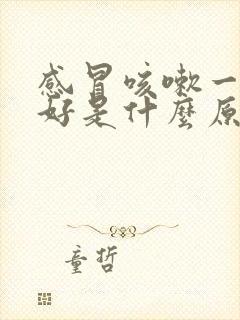 感冒咳嗽一
好是什麼原
童哲